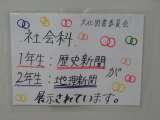 文化図書委員会
社会科
1年生：歴史新聞
2年生：地理新聞
が
展示されています。